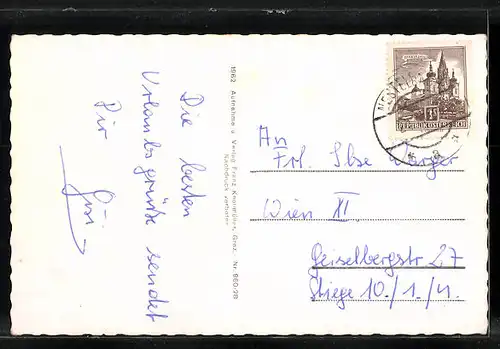 Die besten
Urlaubsgrüße sendet
Dir
Gusi
1962 Aufnahme u. Verlag Franz Knollmüller, Graz. Nr. 960
Nachdruck verboten
REPUBLIK ÖSTERREICH
An
Frl. Ilse
Wien XI
Geiselbergstr 27
Stiege 10/1/4.